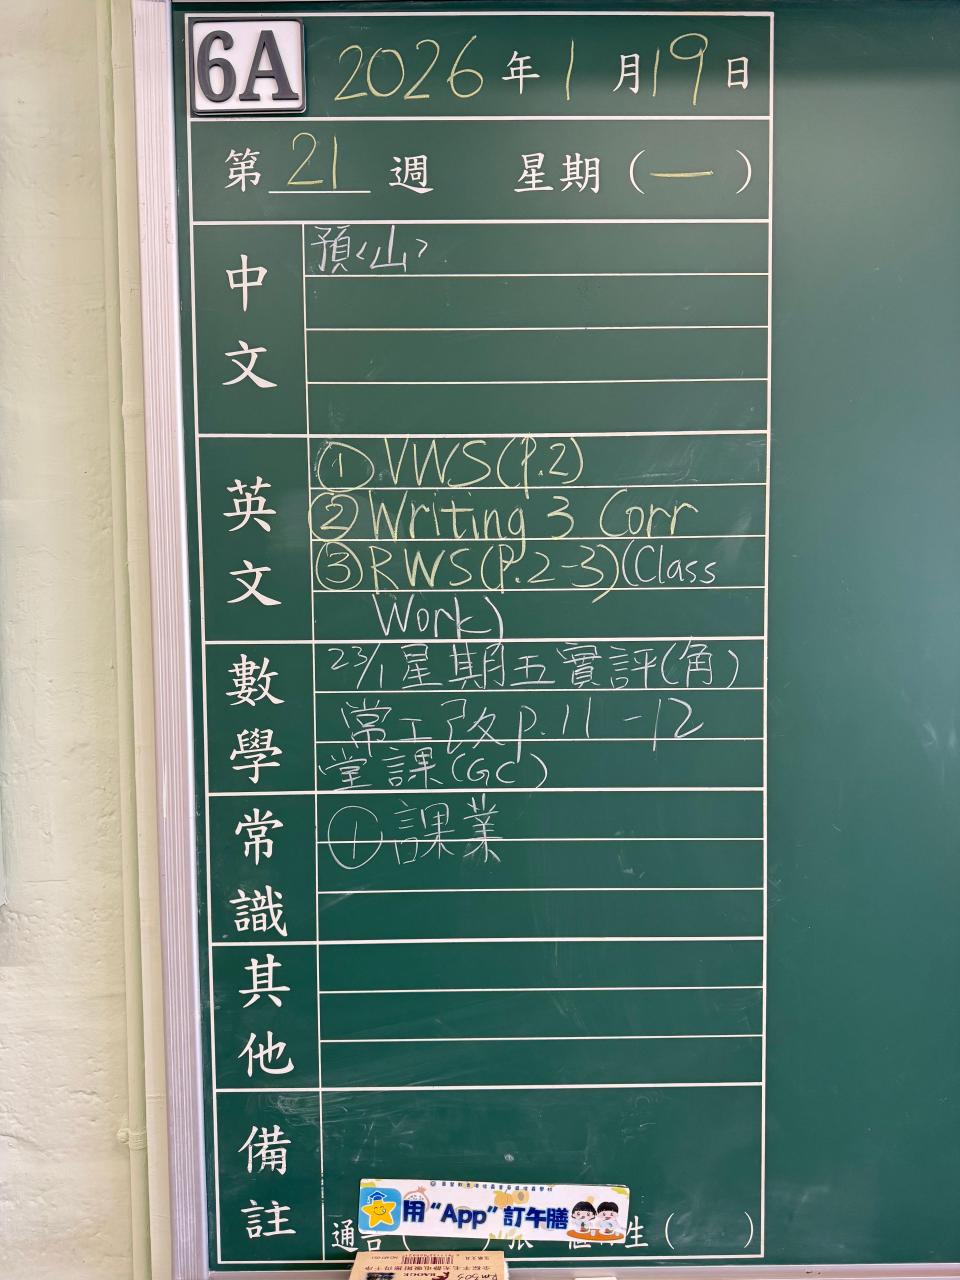 6A 2026年1月19日
第21週 星期(一)
中文
預<山>
英文
①VWS(P.2)
②Writing 3 Corr
③RWS(P.2-3)(Class
Work)
數學
23/1星期五實評(角)
常工改p.11-12
堂課(GC)
常識
①課業
其他
備註
用“App”訂午膳
通告( 張 生( )